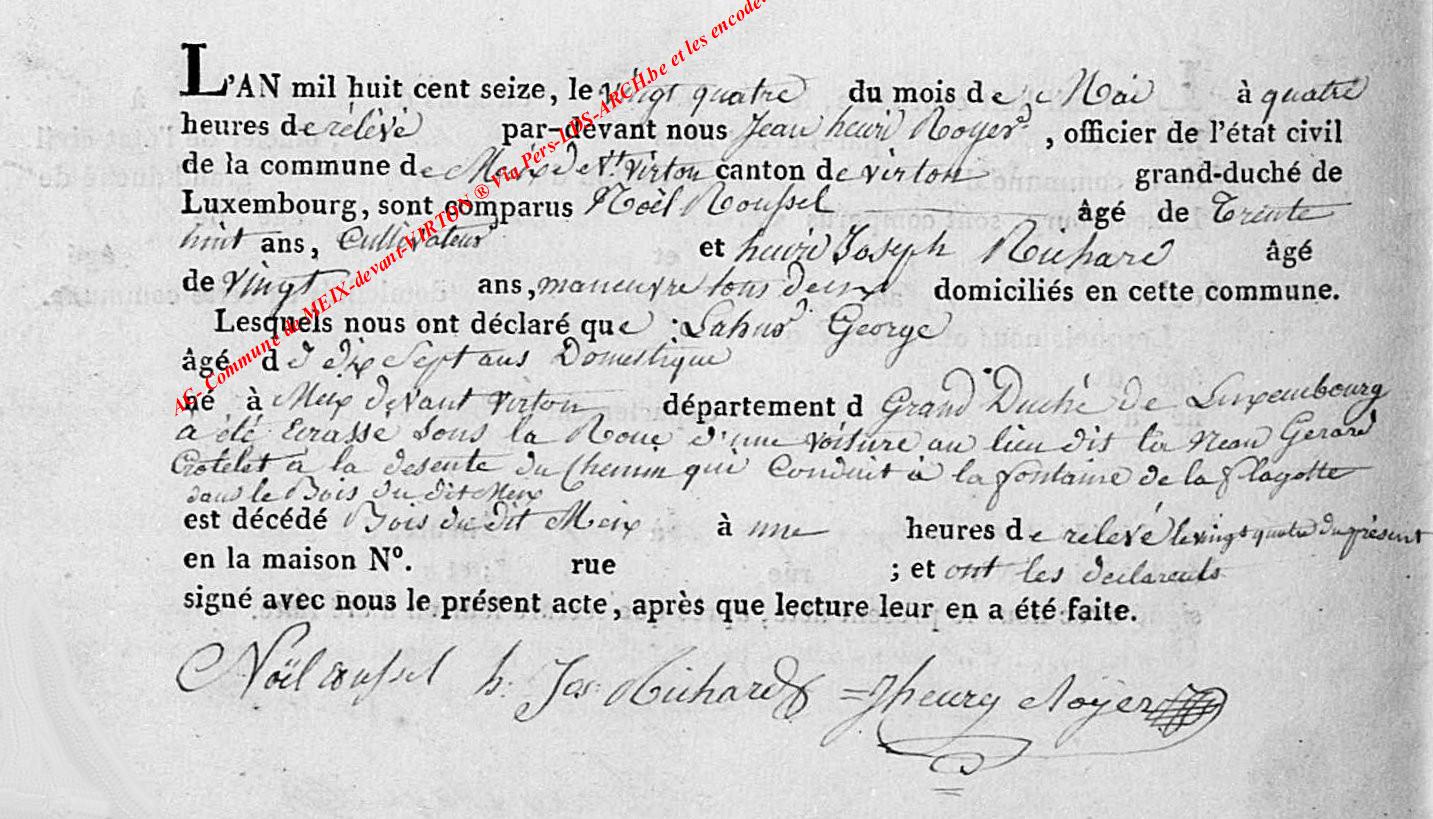 L'AN mil huit cent seize, le vingt quatre du mois de Mai à quatre
heures de rélévé par-devant nous Jean henri Royer, officier de l'état civil
de la commune de Meix de Vt virton canton de virton grand-duché de
Luxembourg, sont comparus Noël Roussel âgé de Trente
huit ans, Cultivateur et henri Joseph Richard âgé
de vingt ans, maneuvre tous deux domiciliés en cette commune.
Lesquels nous ont déclaré que George
âgé d dix Sept ans Domestique
né à Meix devant virton département d Grand Duché de Luxembourg
a été Ecrassé sous la Roue d'une voiture au lieu dit Gerard
Crotelet à la desente du Chemin qui Conduit à la fontaine de la
dans le Bois du dit Meix
est décédé Bois du dit Meix à une heures de relevé le vingt quatre du présent
en la maison N°. rue ; et ont les declarents
signé avec nous le présent acte, après que lecture leur en a été faite.
Noël roussel h. Jos. Richard J henry Royer
AC- Commune de MEIX-devant-VIRTON ® Via Pers-LDS-ARCH.be et les encode